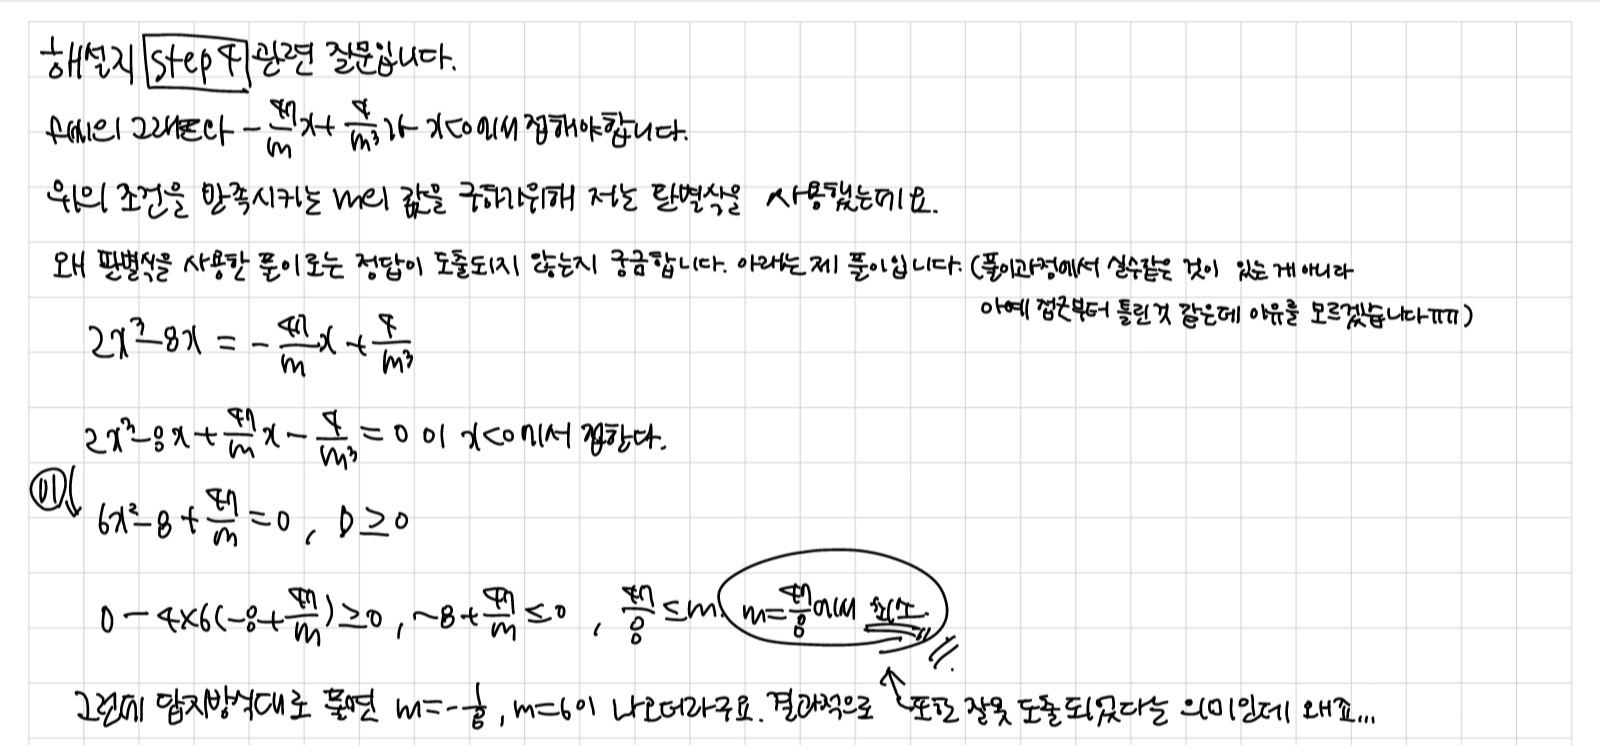 해설지 step 4 관련 질문입니다.
f(x)의 그래프와 -47/m x + 4/m³ 가 x<0에서 접해야합니다.
위의 조건을 만족시키는 m의 값을 구하기위해 저는 판별식을 사용했는데요.
왜 판별식을 사용한 풀이로는 정답이 도출되지 않는지 궁금합니다. 아래는 제 풀이입니다. (풀이과정에서 실수같은 것이 있는게 아니라
아예 접근부터 틀린것 같은데 이유를 모르겠습니다ㅠㅠ)
2x³-8x = -47/m x + 4/m³
2x³-8x + 47/m x - 4/m³ = 0 이 x<0에서 접한다.
미 ↓ 6x²-8 + 47/m = 0, D≥0
0-4×6(-8+47/m)≥0, -8+47/m ≤0, 47/8 ≤m. m=47/8에서 최소
그런데 답지방식대로 풀면 m=-1/8, m=6이 나오더라구요. 결과적으로 ↑ 또한 잘못 도출되었다는 의미인데 왜죠...